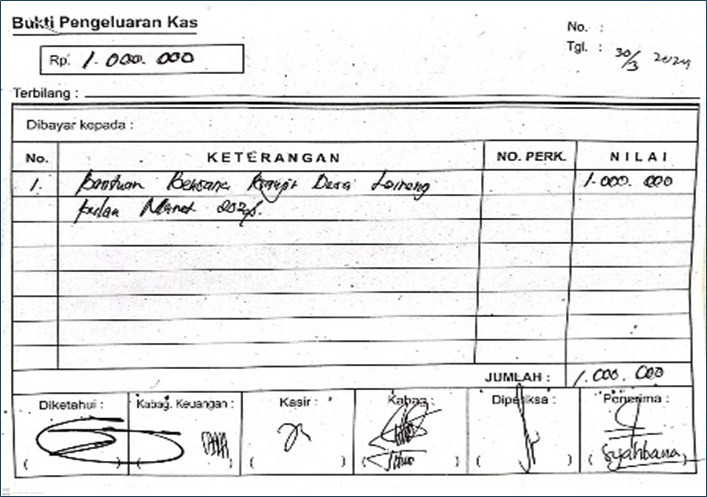 Bukti Pengeluaran Kas
No. :
Tgl. : 30/3 2024
Rp. 1.000.000
Terbilang :
Dibayar kepada :
No. KETERANGAN NO. PERK. NILAI
1. Bantuan Bencana Desa 1.000.000
bulan Maret 2024.
JUMLAH : 1.000.000
Diketahui : Kabag. Keuangan : Kasir : Kabag : Diperiksa : Penerima :
( ) ( ) ( ) ( ) ( ) ( Syahbana )